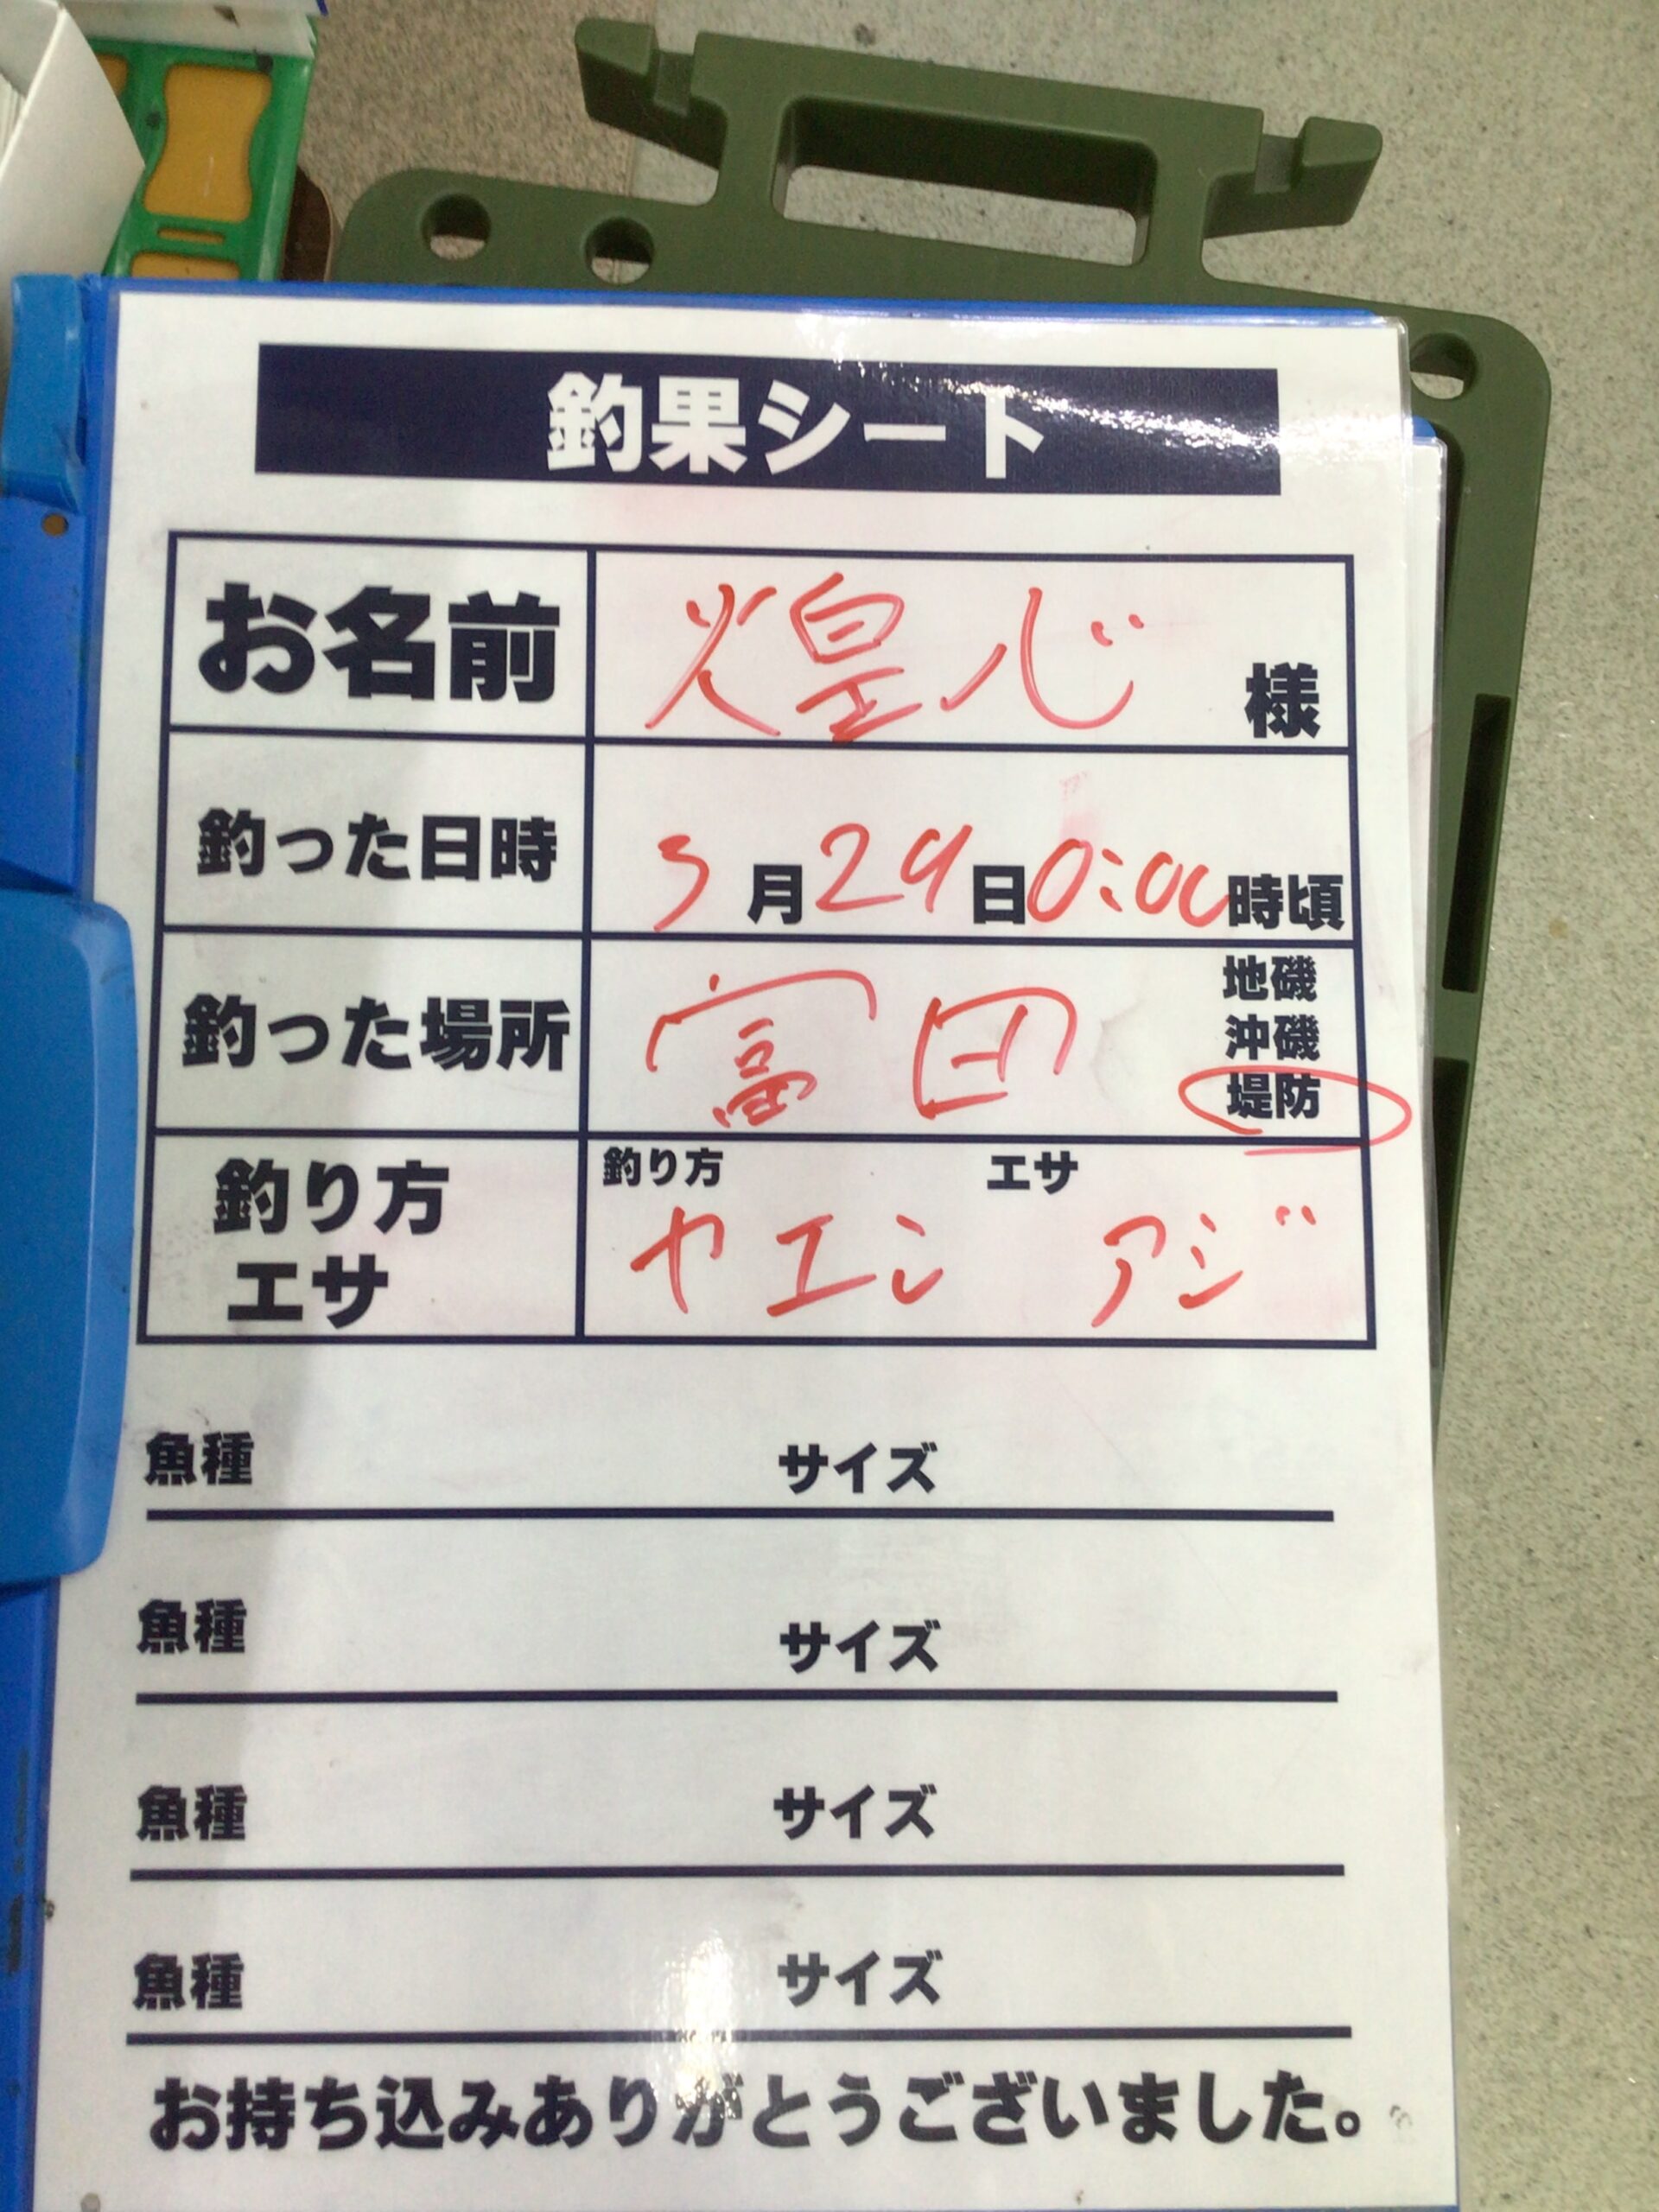 釣果シート
お名前 煌心 様
釣った日時 3月29日0:00時頃
釣った場所 富田 地磯
沖磯
堤防
釣り方 エサ
釣り方 ヤエン エサ アジ
魚種 サイズ
魚種 サイズ
魚種 サイズ
魚種 サイズ
お持ち込みありがとうございました。